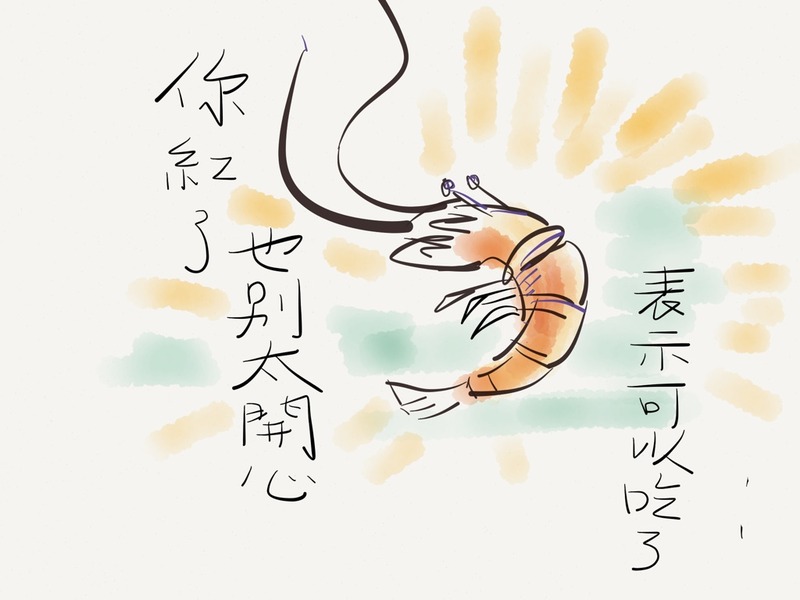 你紅了
也別太開心
表示可以吃了